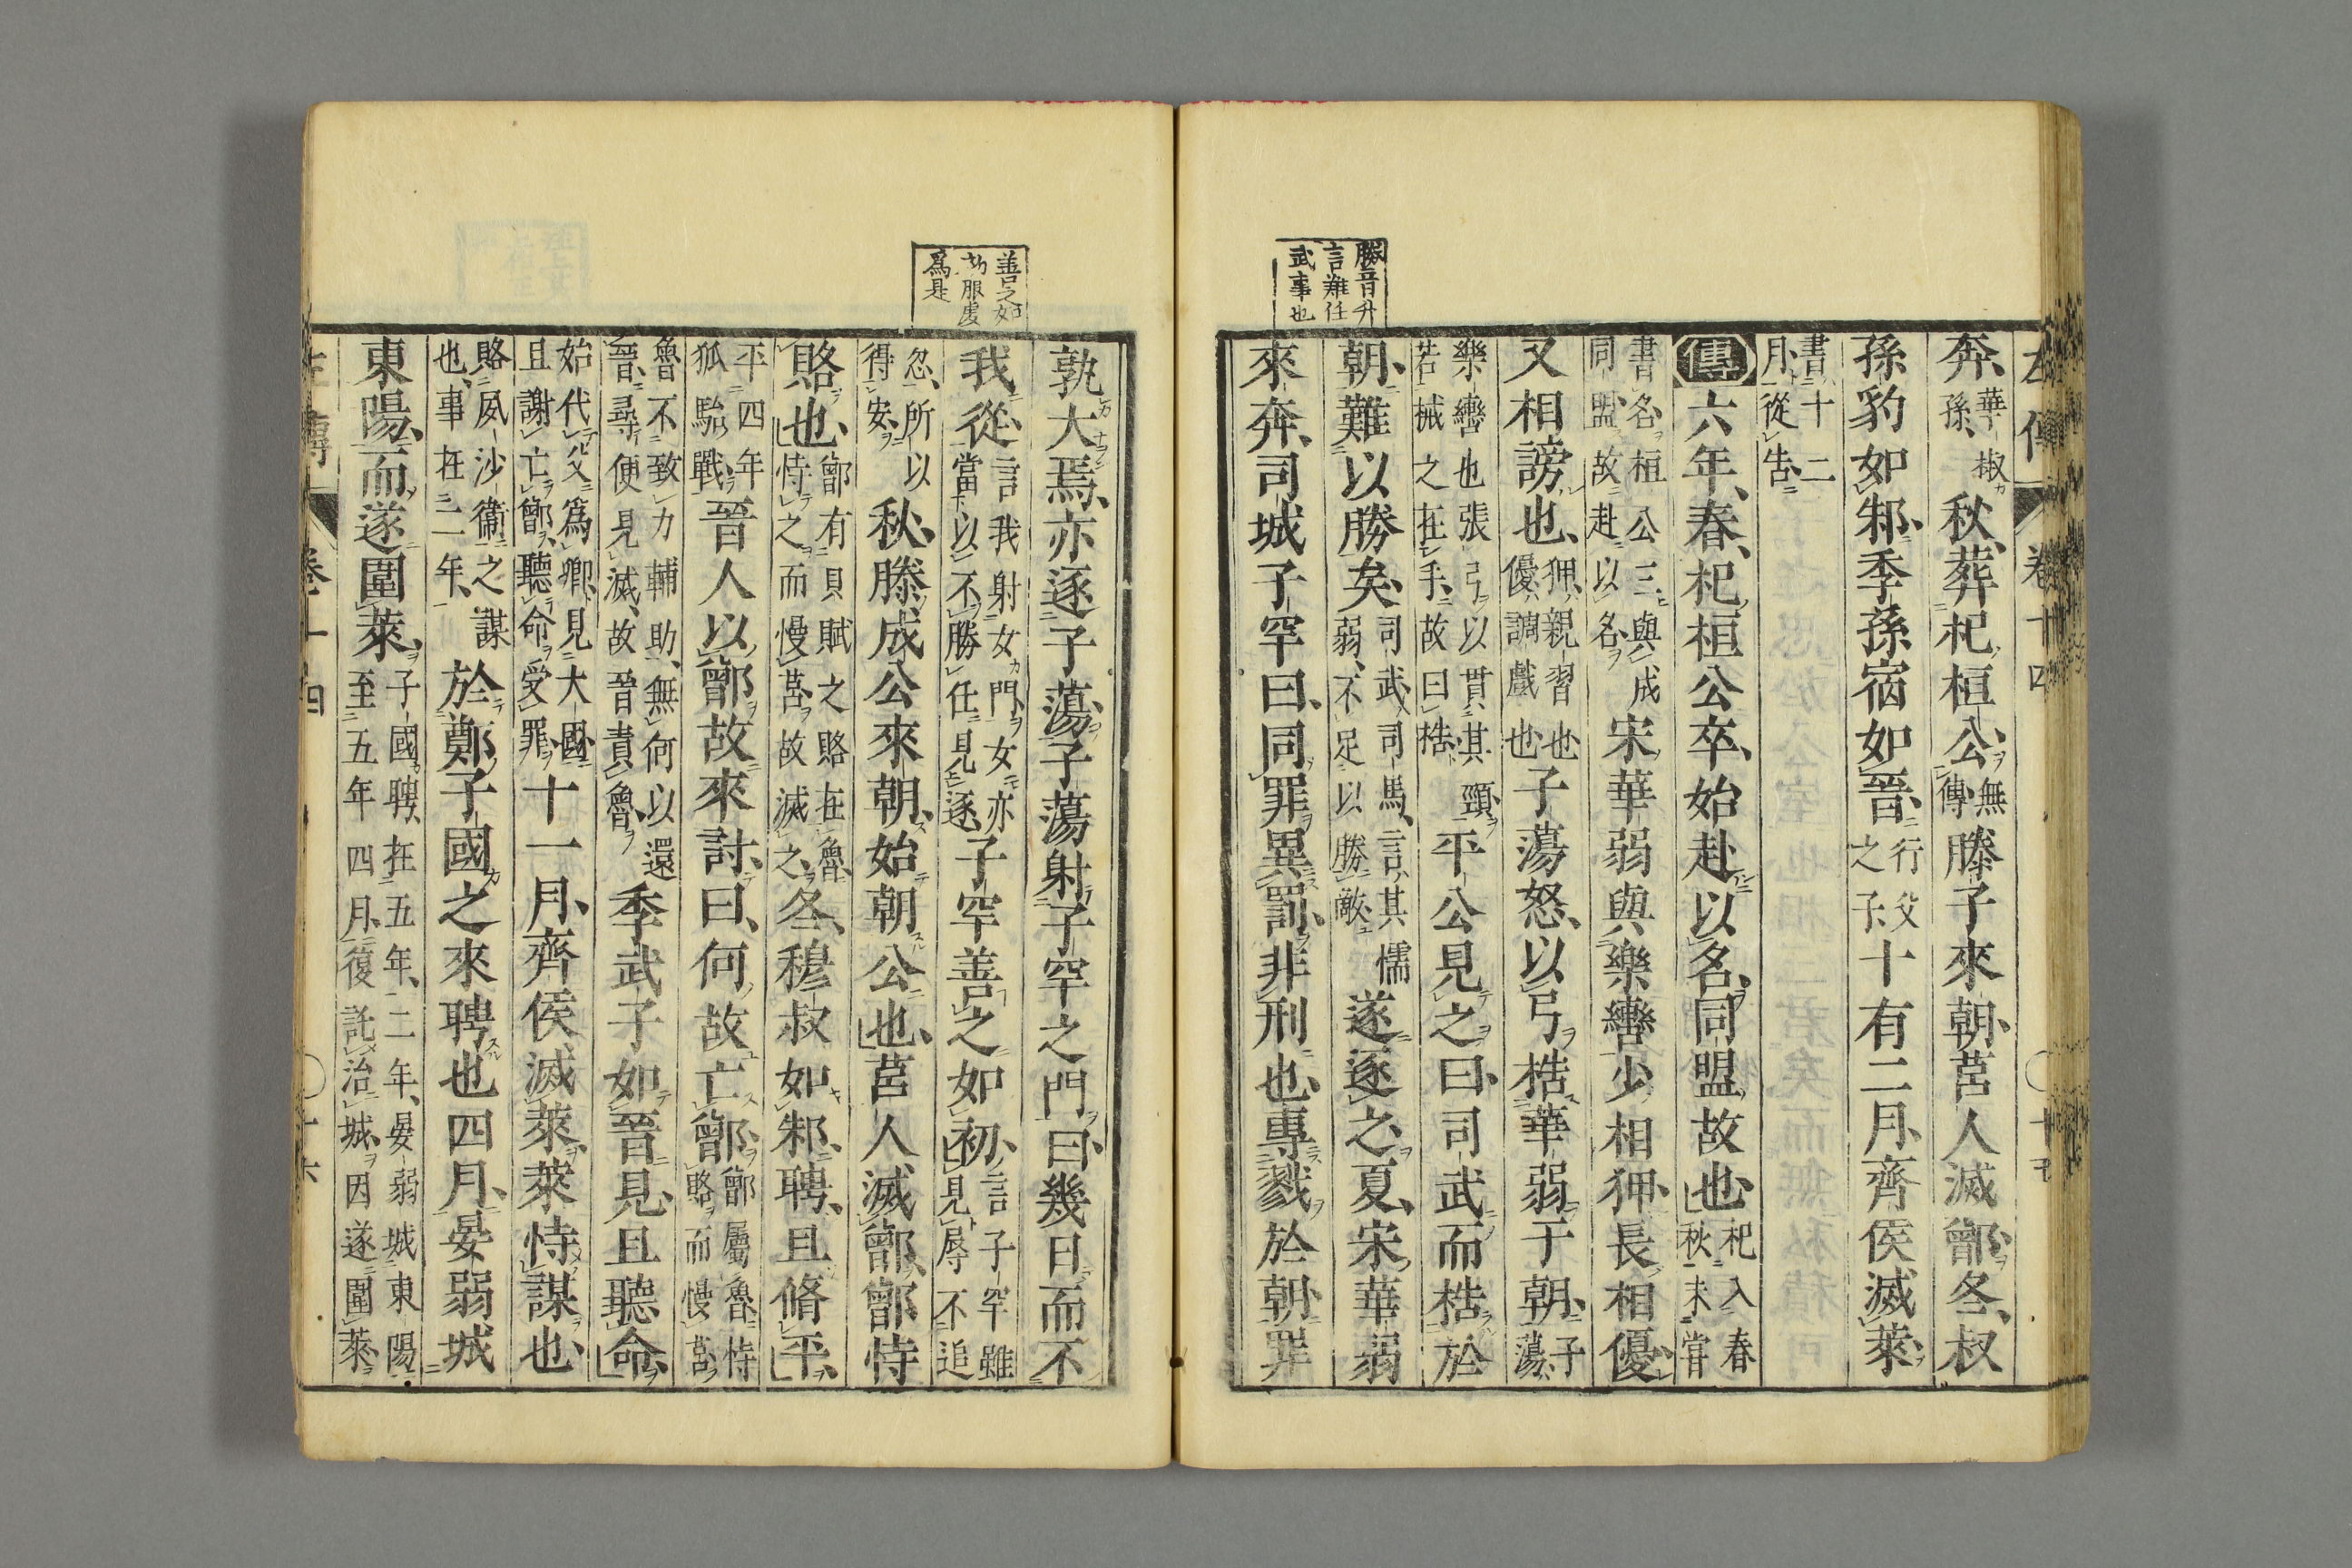 左傳 卷十四
勝音升
言難任
武事也
奔、華椒孫、秋、葬杞桓公、無傳滕子來朝、莒人滅鄫、冬、叔
孫豹如邾、季孫宿如晉、行父之子、十有二月、齊侯滅萊、
書、十二月、從告
傳六年、春、杞桓公卒、始赴以名、同盟故也、杞入春秋未嘗
書名桓公三與成同盟故赴以名宋華弱與樂轡少相狎、長相優、
又相謗也、狎、親習也優、調戲也子蕩怒、以弓梏華弱于朝、子蕩、
樂轡也張弓以貫其頸、若械之在手、故曰梏、平公見之曰、司武而梏於
朝、難以勝矣、司武、司馬、言其懦弱、不足以勝敵遂逐之、夏、宋華弱
來奔、司城子罕曰、同罪異罰、非刑也、專戮於朝、罪
善之如
初服虔
爲是
孰大焉、亦逐子蕩、子蕩射子罕之門、曰、幾日而不
我從、言我射女門、女亦當以不勝任見逐、子罕善之如初、言子罕雖見辱不追
忿、所以得安秋、滕成公來朝、始朝公也、莒人滅鄫、鄫恃
賂也、鄫有貢賦之賂在魯、恃之而慢莒故滅之、冬、穆叔如邾、聘、且脩平、
平四年狐駘戰晉人以鄫故來討、曰、何故亡鄫、鄫屬魯恃賂而慢莒
魯不致力輔助、無何以還晉、尋便見滅、故晉責魯季武子如晉見、且聽命、
始代父爲卿、見大國且謝亡鄫、聽命受罪十一月、齊侯滅萊、萊恃謀也、
賂夙沙衞之謀也、事在二年、於鄭子國之來聘也四月、晏弱城
東陽、而遂圍萊、子國聘、在五年、二年、晏弱城東陽至五年四月、復託治城、因遂圍萊
左傳 卷十四 十六